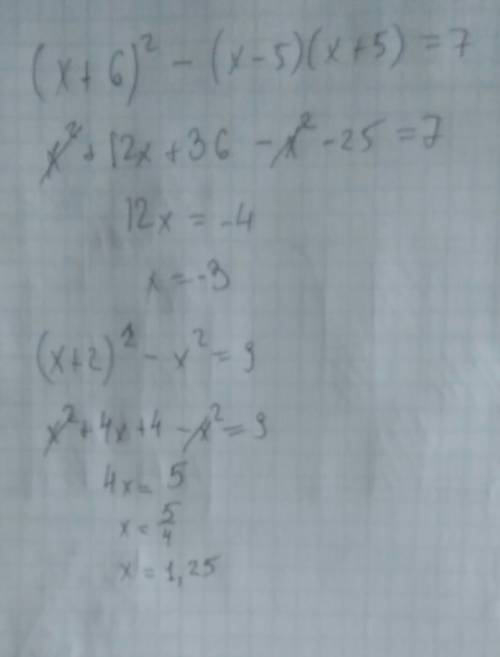 (x+6)² - (x-5)(x+5) = 7
x² + 12x + 36 - x² - 25 = 7
12x = -4
x = -3
(x+2)² - x² = 9
x² + 4x + 4 - x² = 9
4x = 5
x = 5/4
x = 1,25